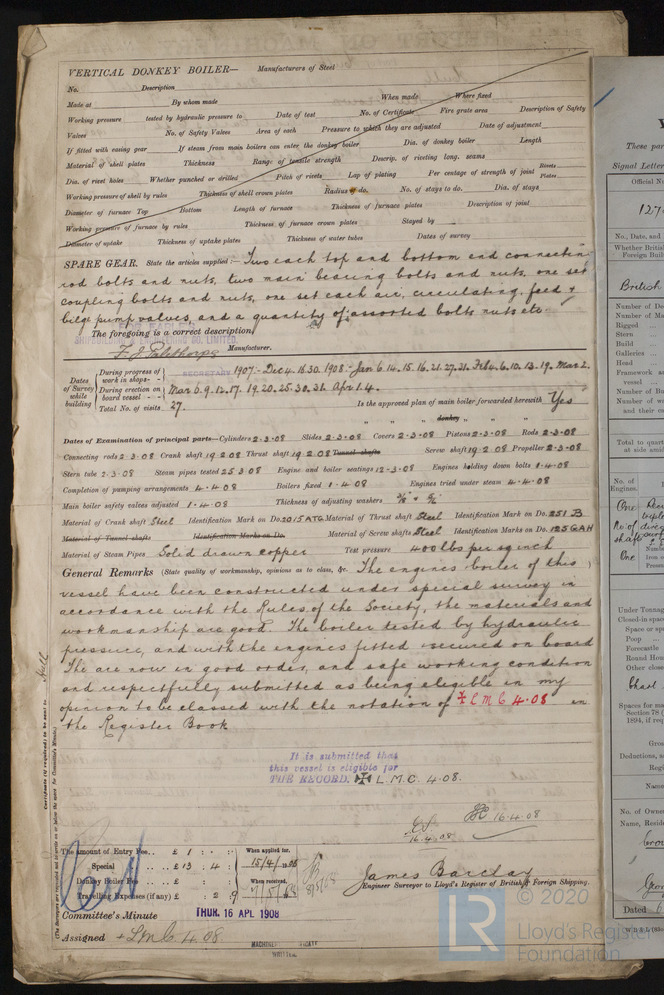 VERTICAL DONKEY BOILER— Manufacturers of Steel
No. Description
Made at By whom made When made Where fixed
Working pressure tested by hydraulic pressure to Date of test No. of Certificate Fire grate area Description of Safety
Valves No. of Safety Valves Area of each Pressure to which they are adjusted Date of adjustment
If fitted with easing gear If steam from main boilers can enter the donkey boiler Dia. of donkey boiler Length
Material of shell plates Thickness Range of tensile strength Descrip. of riveting long. seams
Dia. of rivet holes Whether punched or drilled Pitch of rivets Lap of plating Per centage of strength of joint Rivets Plates
Working pressure of shell by rules Thickness of shell crown plates Radius of do. No. of stays to do. Dia. of stays
Diameter of furnace Top Bottom Length of furnace Thickness of furnace plates Description of joint
Working pressure of furnace by rules Thickness of furnace crown plates Stayed by
Diameter of uptake Thickness of uptake plates Thickness of water tubes Dates of survey
SPARE GEAR. State the articles supplied:— Two each top and bottom end connecting
rod bolts and nuts, two main bearing bolts and nuts, one set
coupling bolts and nuts, one set each air, circulating, feed &
bilge pump valves, and a quantity of assorted bolts nuts etc
The foregoing is a correct description,
Manufacturer.
SECRETARY
Dates of Survey while building
During progress of work in shops - - 1907:- Dec 4. 18.30. 1908:- Jan 6.14.15.16.21.27.31. Feb 4.6.10.13.19. Mar 2.
During erection on board vessel - - - Mar 6.9.12.17. 19.20.25.30.31. Apr 1.4.
Total No. of visits 27. Is the approved plan of main boiler forwarded herewith Yes
" " " donkey " " "
Dates of Examination of principal parts—Cylinders 2-3-08 Slides 2-3-08 Covers 2-3-08 Pistons 2-3-08 Rods 2-3-08
Connecting rods 2-3-08 Crank shaft 19 2 08 Thrust shaft 19 2 08 Tunnel shafts Screw shaft 19 2 08 Propeller 2-3-08
Stern tube 2-3-08 Steam pipes tested 25 3 08 Engine and boiler seatings 12-3-08 Engines holding down bolts 1-4-08
Completion of pumping arrangements 4-4-08 Boilers fixed 1-4-08 Engines tried under steam 4-4-08
Main boiler safety valves adjusted 1-4-08 Thickness of adjusting washers
Material of Crank shaft Steel Identification Mark on Do. 2015 ATG Material of Thrust shaft Steel Identification Mark on Do. 251 B
Material of Tunnel shafts Identification Marks on Do. Material of Screw shafts Steel Identification Marks on Do. 125 GAH
Material of Steam Pipes Solid drawn copper Test pressure 400 lbs per sq inch
General Remarks (State quality of workmanship, opinions as to class, &c. The engines & boiler of this
vessel have been constructed under special survey in
accordance with the Rules of the Society, the materials and
workmanship are good. The boiler tested by hydraulic
pressure, and with the engines fitted & secured on board
The are now in good order, and safe working condition
and respectfully submitted as being eligible in my
opinion to be classed with the notation of ✠ L M C 4.08 in
the Register Book
It is submitted that
this vessel is eligible for
THE RECORD. ✠ L.M.C. 4.08.
16.4.08
16.4.08
The amount of Entry Fee . . £ 1 : : When applied for,
Special . . . . £ 13 : 4 : 15/4/1908
Donkey Boiler Fee . . . £ : : When received,
Travelling Expenses (if any) £ : 2 : 9
James Barclay
Engineer Surveyor to Lloyd's Register of British & Foreign Shipping.
Committee's Minute THUR. 16 APL 1908
Assigned + LMC 4.08
WRITTEN.
Certificate (if required) to be sent to Hull
© 2020
LR
Lloyd's Register
Foundation
These par
Signal Letter
Official N
No., Date, and
Whether British
Foreign Buil
British
Number of De
Number of Ma
Rigged
Stern
Build
Galleries
Head
Framework a
vessel
Number of B
Number of w
and their c
Total to quart
at side amid
No. of
Engines.
One
One
Under Tonnag
Closed-in space
Space or sp
Poop
Forecastle
Round Hou
Other close
Spaces for ma
Section 78 (
1894, if requ
Gro
Deductions, a
Regi
No. of Owner
Name, Reside
Dated